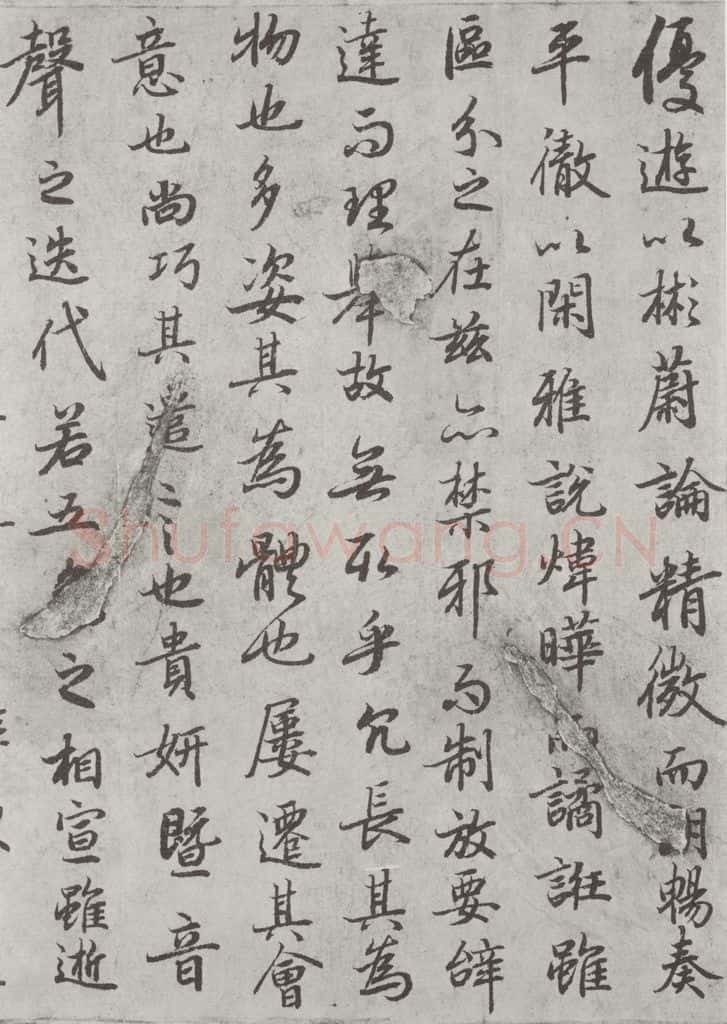 優遊以彬蔚論精微而朗暢奏
平徹以閑雅說煒曄而譎誑雖
區分之在茲亦禁邪而制放要辞
達而理舉故無取乎冗長其為
物也多姿其為體也屢遷其會
意也尚巧其遣言也貴妍暨音
聲之迭代若五色之相宣雖逝
Shufawang.CN